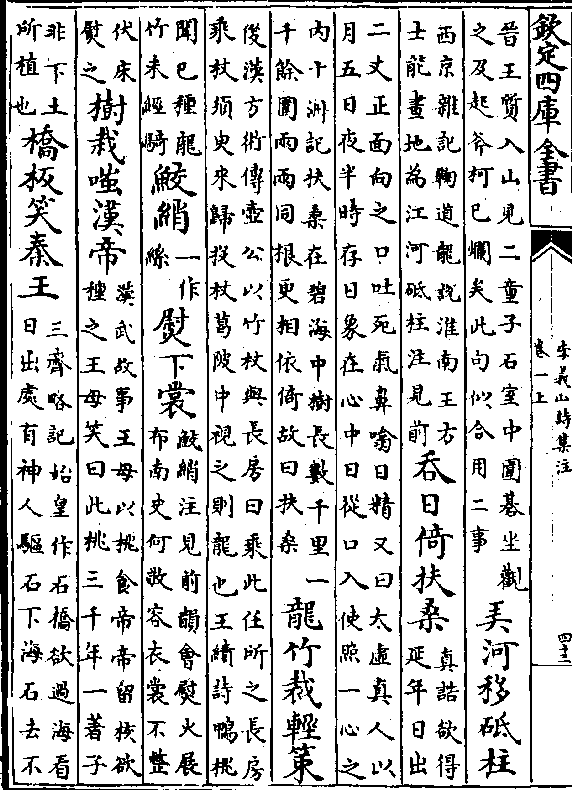 欽定四庫全書
李義山詩集注
卷一上
四十二
晉王質入山見二童子石室中圍棊坐觀
之及起斧柯已爛矣此句似合用二事
弄河移砥柱
西京雜記鞠道龍說淮南王方
士能畫地為江河砥柱注見前
吞日倚扶桑
真誥欲得
延年日出
二丈正面向之口吐死氣鼻噏日精又曰太虛真人以
月五日夜半時存日象在心中日從口入使照一心之
内十洲記扶桑在碧海中樹長數千里一
千餘圍兩兩同根更相依倚故曰扶桑
龍竹裁輕策
後漢方術傳壺公以竹杖與長房曰乘此任所之長房
乘杖須臾來歸投杖葛陂中視之則龍也王績詩鴨桃
聞已種龍
竹未經騎
鮫綃
一作
絲
熨下裳
鮫綃注見前韻會熨火展
布南史何敬容衣裳不整
伏床
熨之
樹栽嗤漢帝
漢武故事王母以桃食帝帝留核欲
種之王母笑曰此桃三千年一著子
非下土
所植也
橋板笑秦王
三齊略記始皇作石橋欲過海看
日出處有神人驅石下海石去不